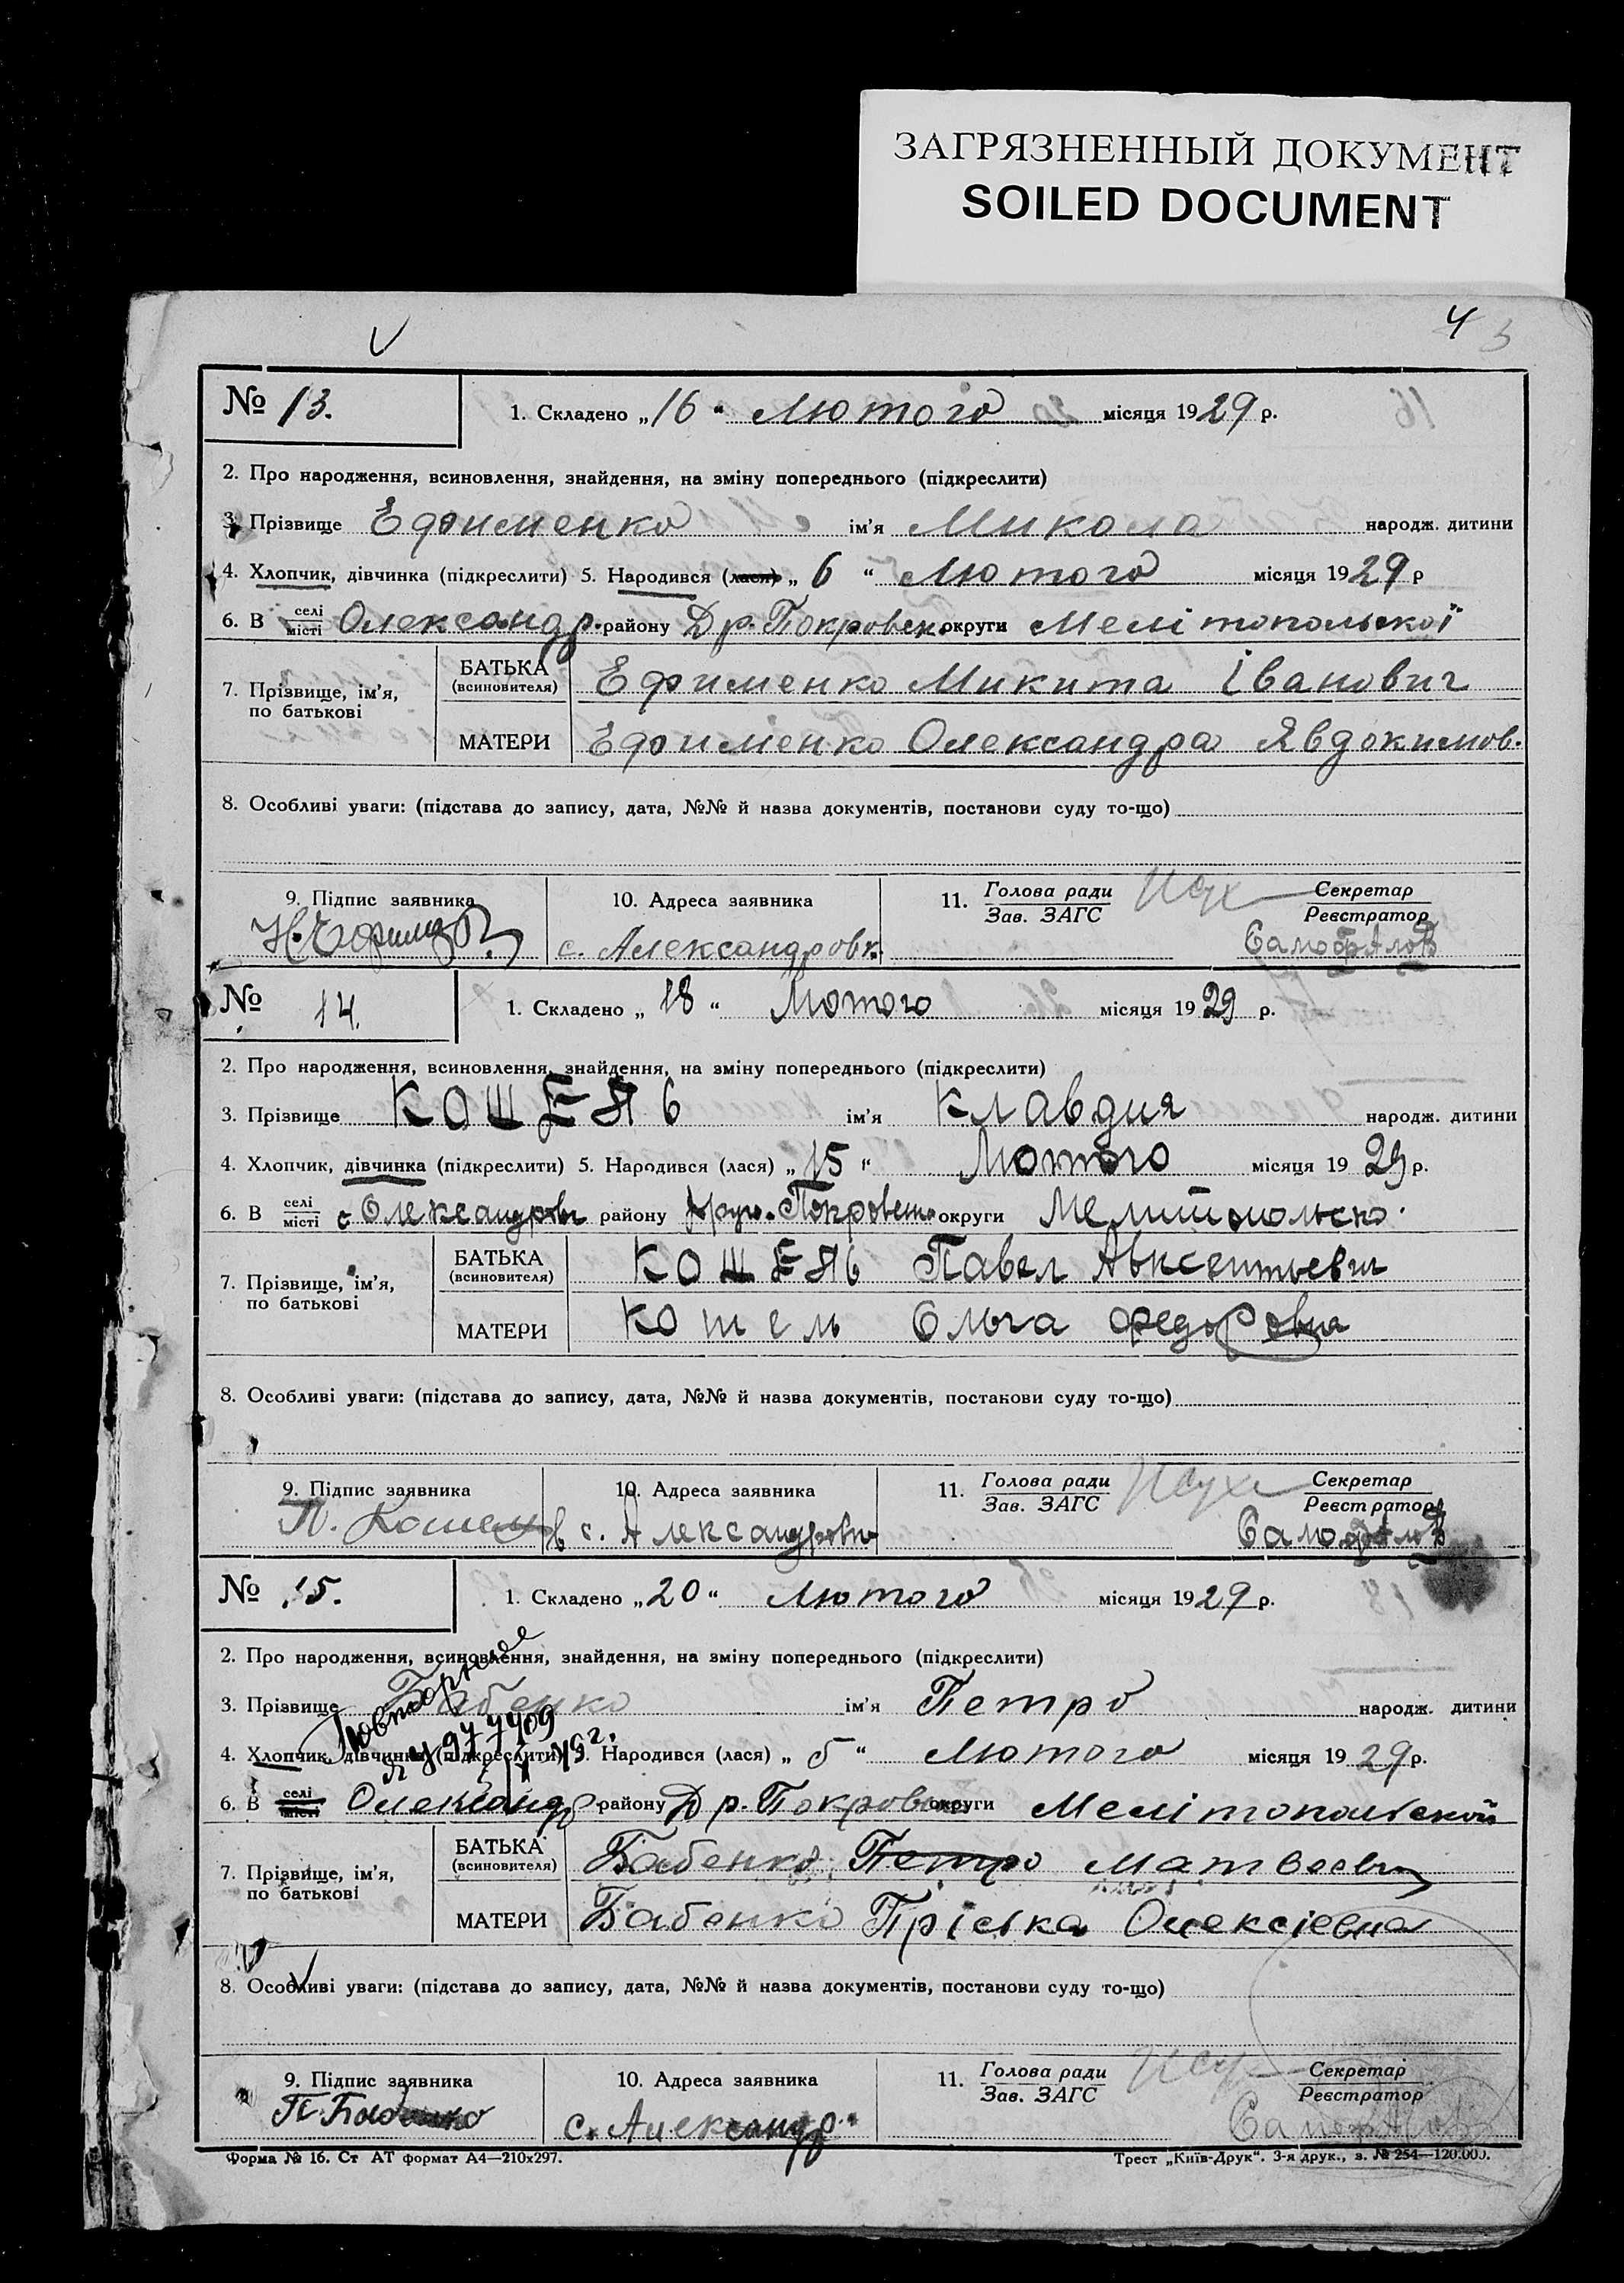 ЗАГРЯЗНЕННЫЙ ДОКУМЕНТ
SOILED DOCUMENT
4
№ 13. 1. Складено „16“ Лютого місяця 1929 р.
2. Про народження, всиновлення, знайдення, на зміну попереднього (підкреслити)
3. Прізвище Ефименко ім'я Микола народж. дитини
4. Хлопчик, дівчинка (підкреслити) 5. Народився (лася) „6“ Лютого місяця 1929 р
6. В селі місті Олександр. району Др. Покровськ. округи Мелітопольскої
7. Прізвище, ім'я, по батькові
БАТЬКА (всиновителя) Ефименко Микита Іванович
МАТЕРИ Ефименко Олександра Явдокимов.
8. Особливі уваги: (підстава до запису, дата, №№ й назва документів, постанови суду то-що)
9. Підпис заявника 10. Адреса заявника 11. Голова ради Зав. ЗАГС Секретар Реєстратор
с. Александровк.
№ 14. 1. Складено „18“ Лютого місяця 1929 р.
2. Про народження, всиновлення, знайдення, на зміну попереднього (підкреслити)
3. Прізвище Кошель ім'я Клавдия народж. дитини
4. Хлопчик, дівчинка (підкреслити) 5. Народився (лася) „15“ Лютого місяця 1929 р.
6. В селі місті с Олександровк району округи Мелитопольско.
7. Прізвище, ім'я, по батькові
БАТЬКА (всиновителя) Кошель Павел Авксентьевич
МАТЕРИ Кошель Ольга Федоровна
8. Особливі уваги: (підстава до запису, дата, №№ й назва документів, постанови суду то-що)
9. Підпис заявника 10. Адреса заявника 11. Голова ради Зав. ЗАГС Секретар Реєстратор
П. Кошель в с. Александровке
№ 15. 1. Складено „20“ Лютого місяця 1929 р.
2. Про народження, всиновлення, знайдення, на зміну попереднього (підкреслити)
Повторное
3. Прізвище Бабенко ім'я Петро народж. дитини
4. Хлопчик, дівчинка (підкреслити) 5. Народився (лася) „5“ Лютого місяця 1929 р.
6. В селі місті Олександр району Др. Покровськ округи Мелітопольской
7. Прізвище, ім'я, по батькові
БАТЬКА (всиновителя) Бабенко Петро Матвеевич
МАТЕРИ Бабенко Пріська Олексіевна
8. Особливі уваги: (підстава до запису, дата, №№ й назва документів, постанови суду то-що)
9. Підпис заявника 10. Адреса заявника 11. Голова ради Зав. ЗАГС Секретар Реєстратор
П. Бабенко с. Александр.
Форма № 16. Ст АТ формат А4—210х297. Трест „Київ-Друк“. 3-я друк., з. № 254—120.000.